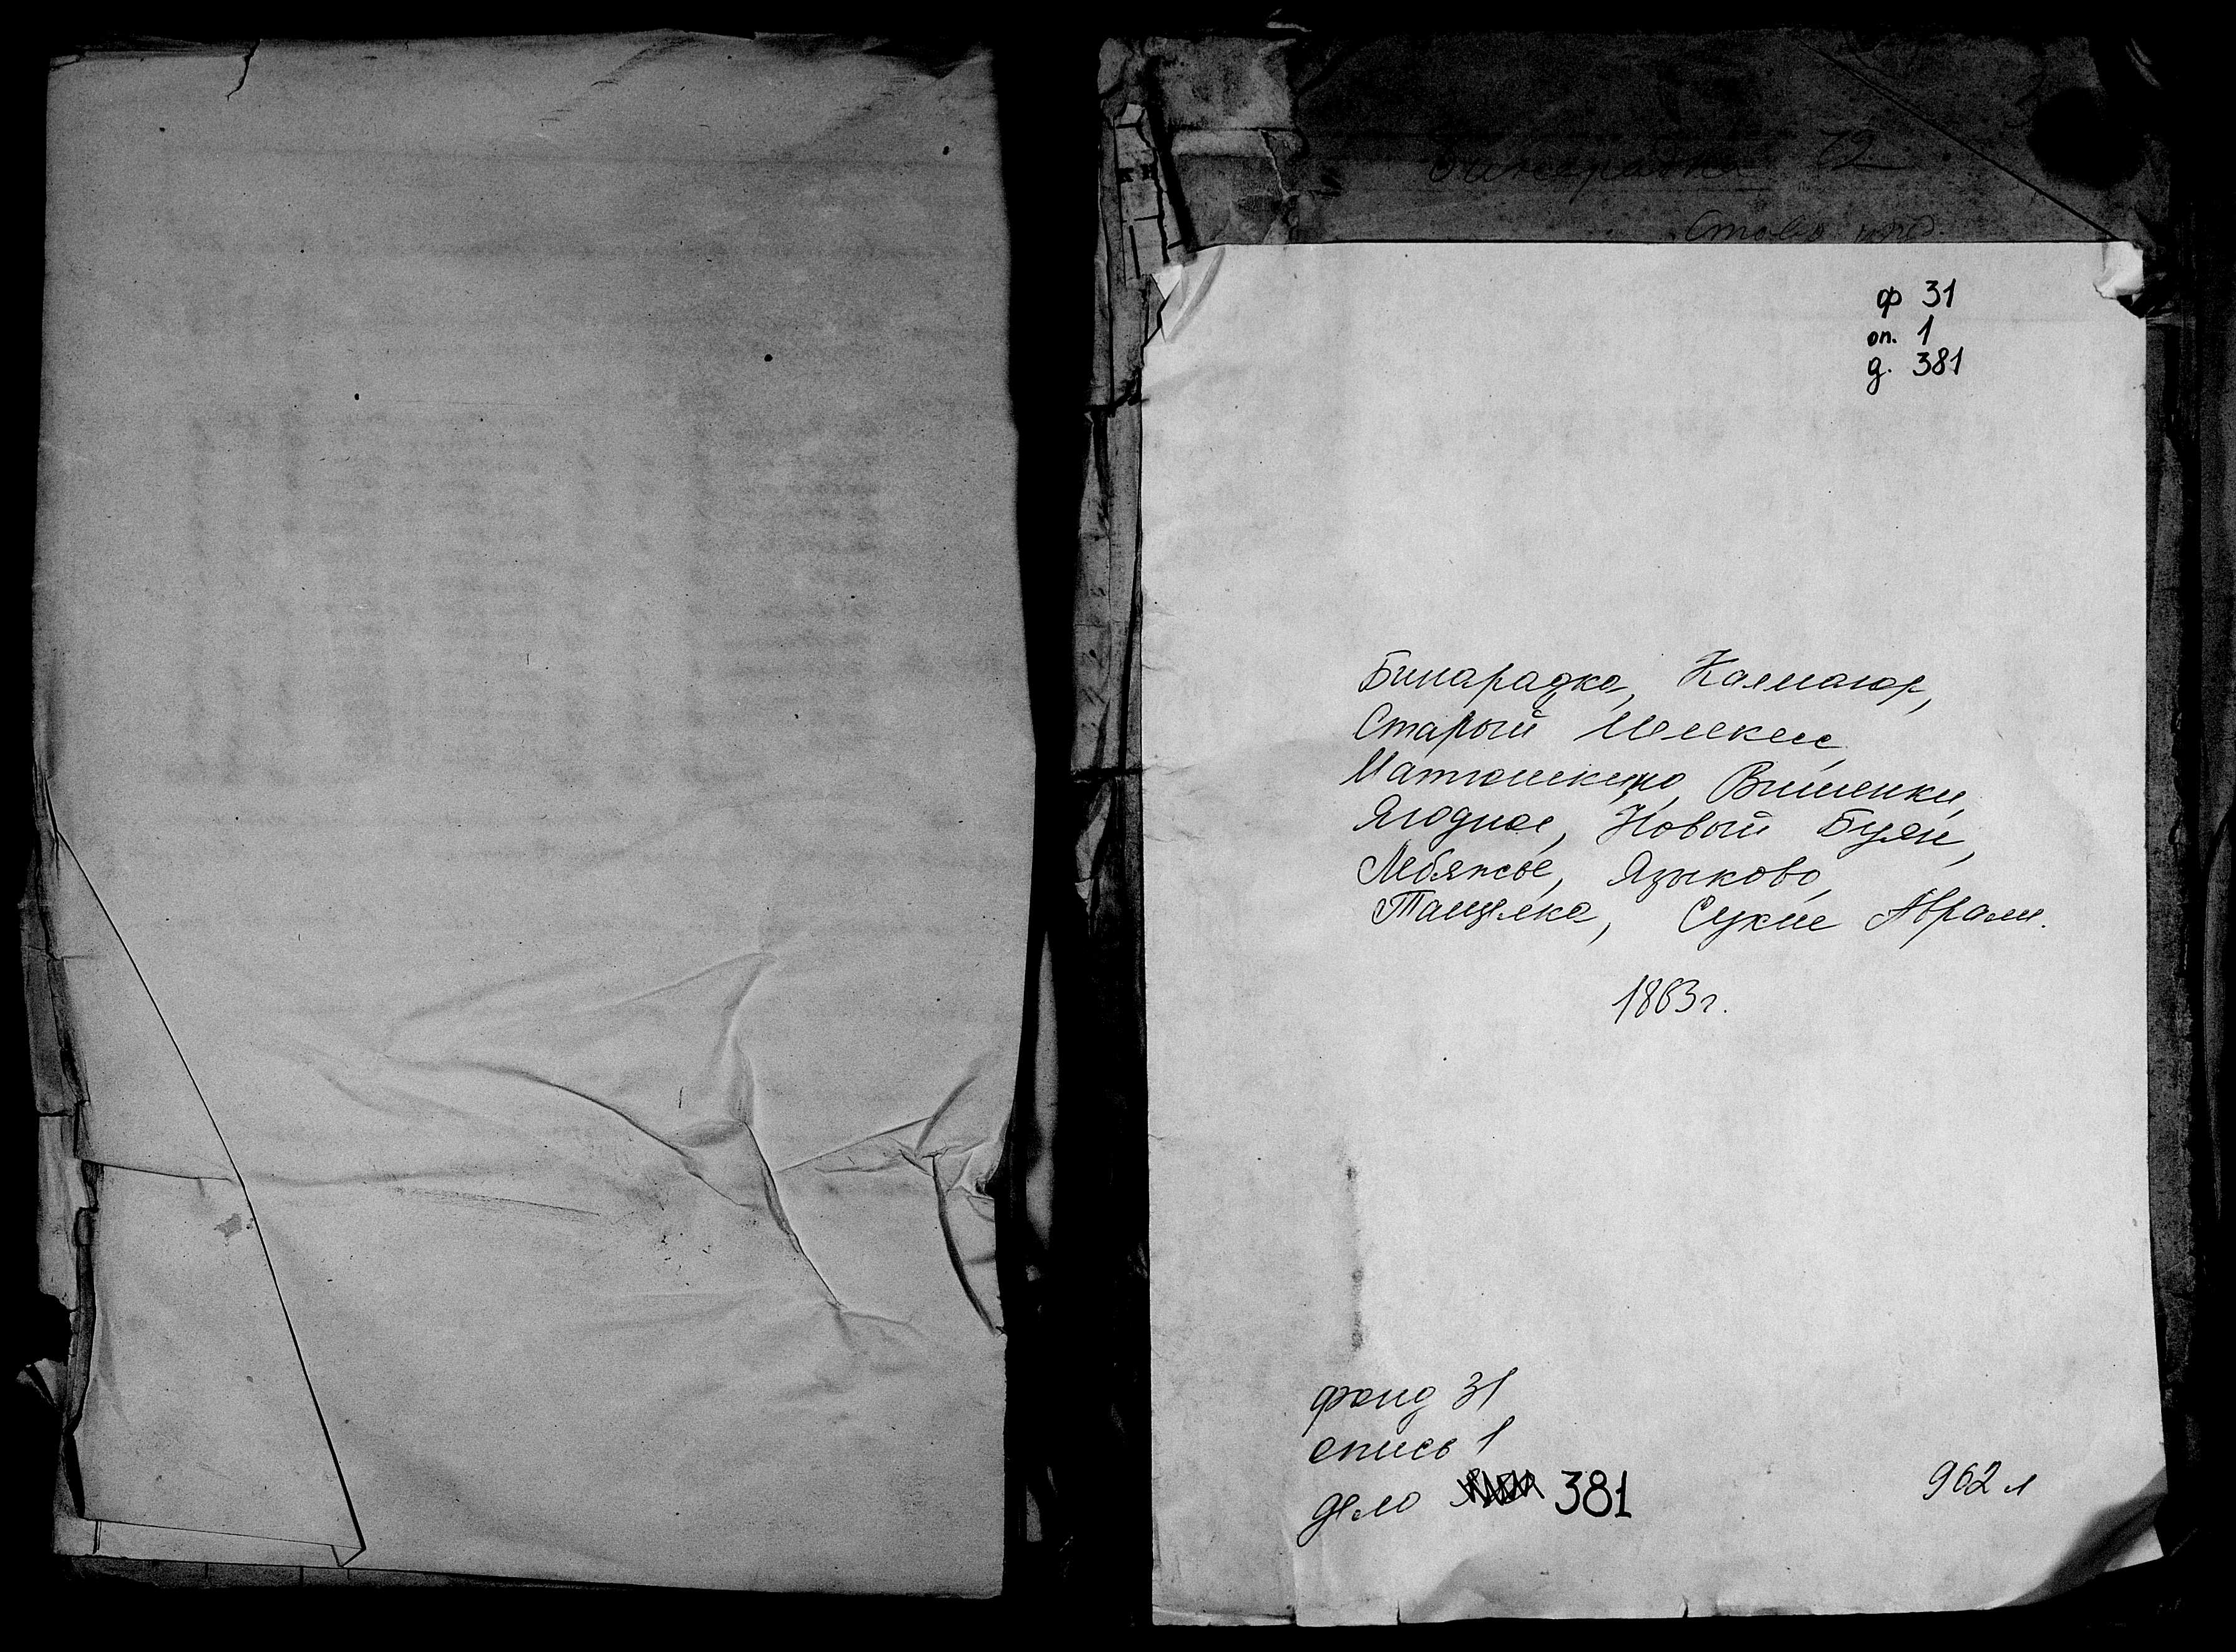 72
ф 31
оп. 1
д. 381
Бинарадка, Калмаюр,
Старый Мелекесс,
Матюшкино, Вишенки,
Ягодное, Новый Буян,
Лебяжье, Языково,
Ташелка, Сукие Аврали.
1863г.
фонд 31
опись 1
дело 381
962 л